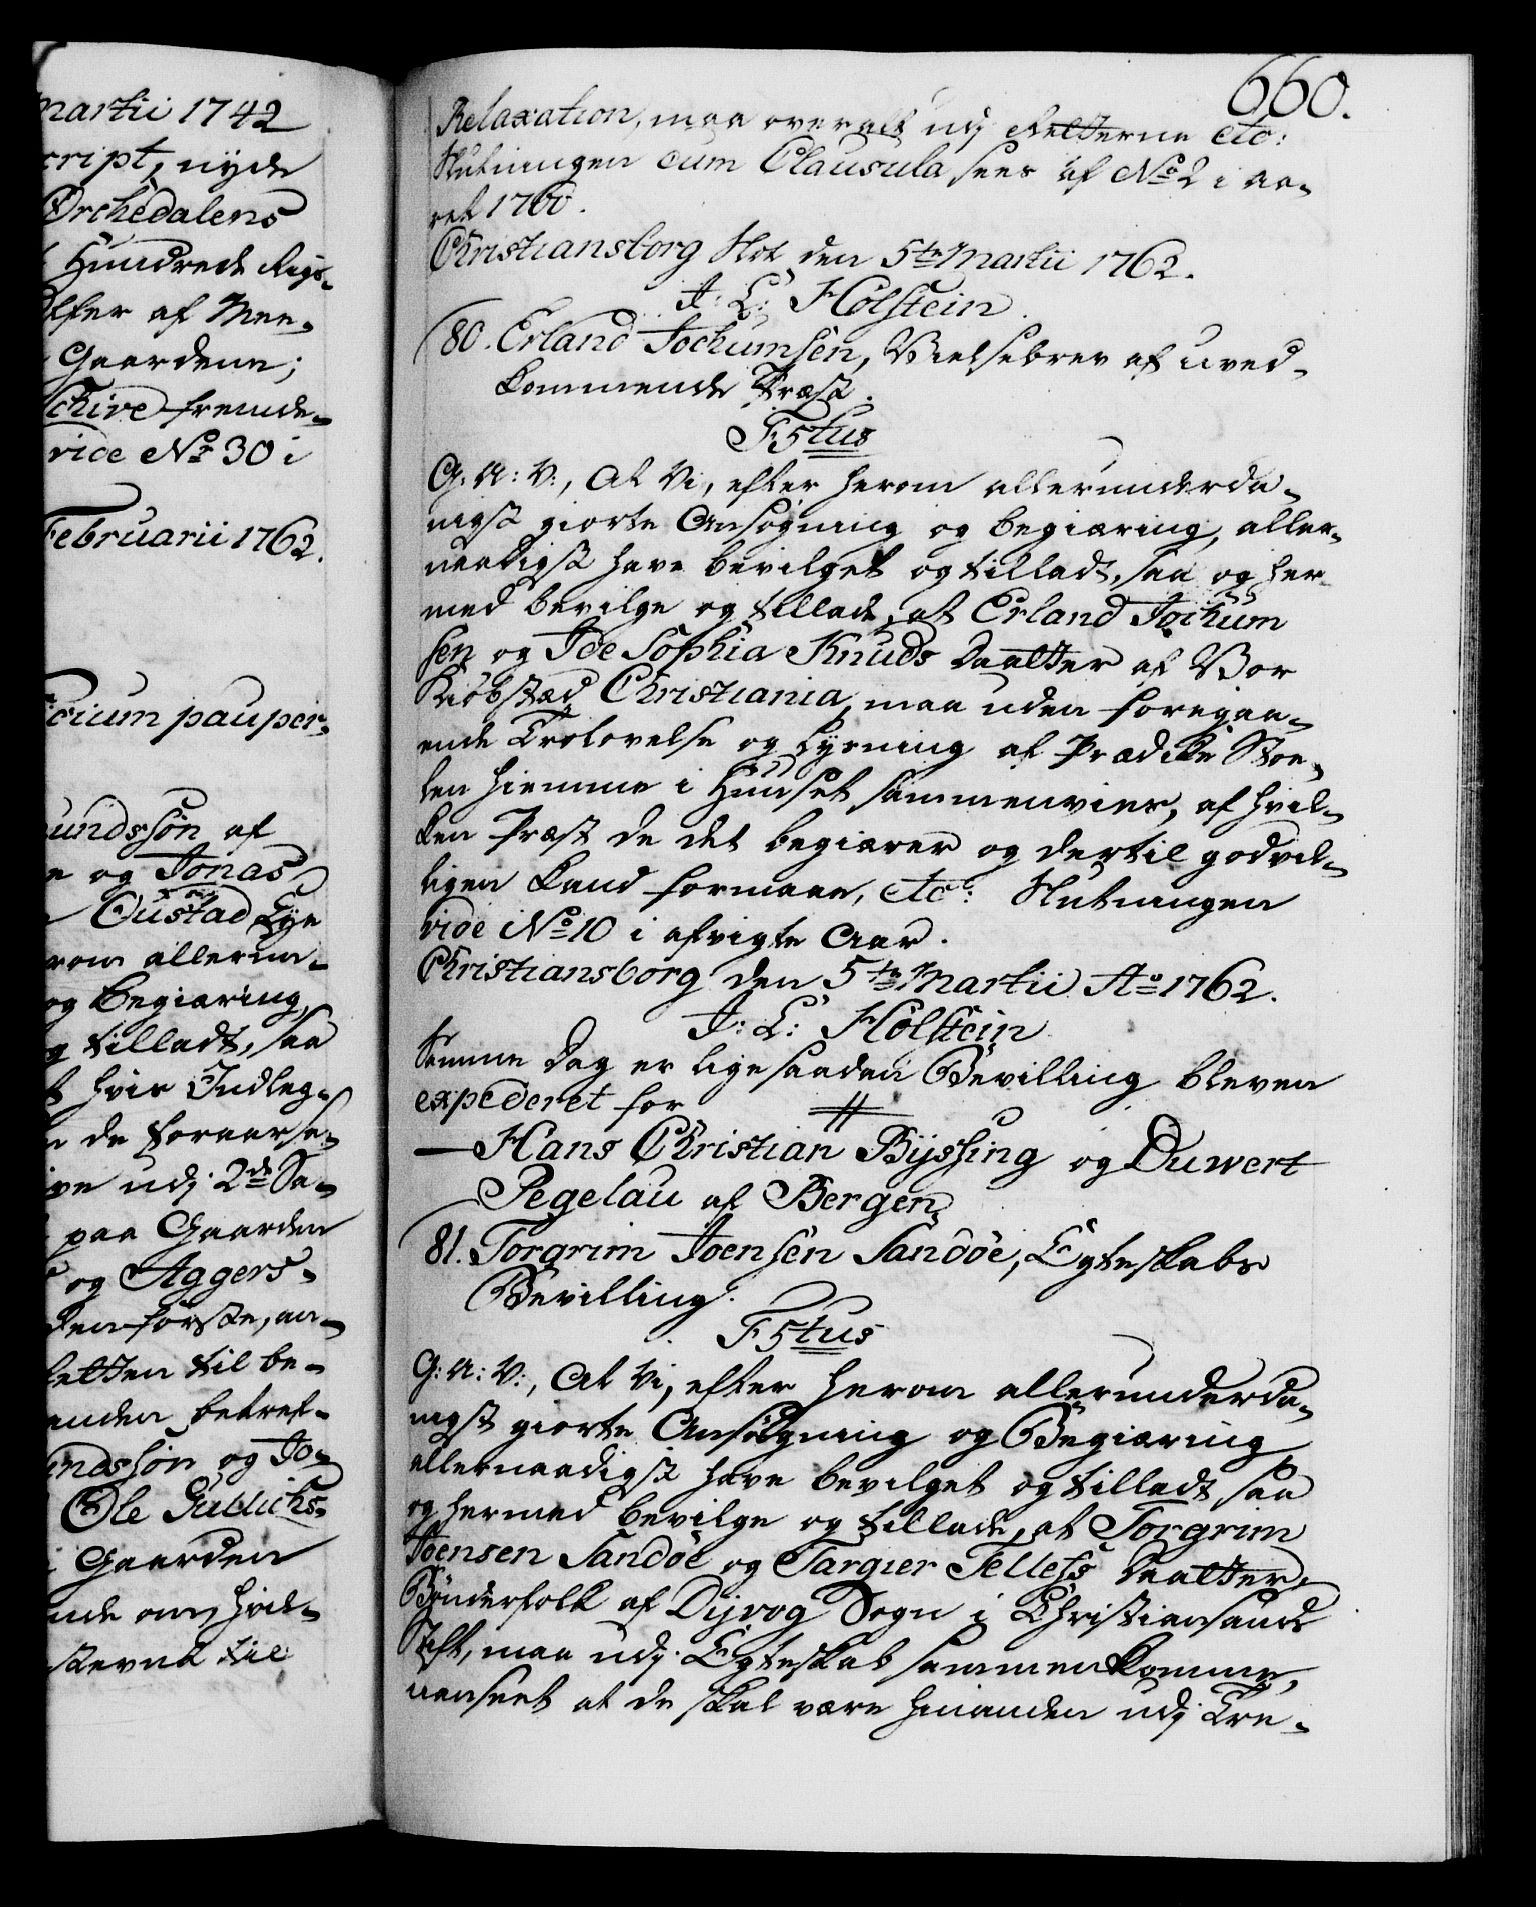 martii 1742
cript, nyde
Orchedalens
Hundrede Rigs-
lser af Men-
Gaardene;
chive fremde-
vide No 30 i
Februarii 1762.
icium pauper:
undssøn af
e og Jonas
Oustad Eye
rom allerun-
og Begiæring,
g tilladt, saa
t hvis Indleg-
n de foraarsa-
ve udj 2de Sa-
paa Gaarden
og Aggers-
den første, an-
retten til be-
anden betref-
indssøn og Jo-
Ole Gullichs-
Gaarden
nde om, hvil-
stevnt til
660.
Relaxation, maa overalt udj Retterne etc:
Slutningen cum Clausula sees af No 2 i aa-
ret 1760.
Christiansborg Slot den 5te Martii 1762.
J: L: Holstein.
80. Erland Jochumsen, Vielsebrev af uved-
kommende Præst.
F5tus
G: A: V:, At Vi, efter herom allerunderda-
nigst giorte Ansøgning og begiæring, aller-
naadigst have bevilget og tilladt, saa og her-
med bevilge og tillade, at Erland Jochum
sen og Ide Sophia Knuds Daatter af Vor
Kiøbstæd Christiania, maa uden foregaa-
ende Trolovelse og Lysning af Prædike Stoe-
len hiemme i Huuset sammenvies, af hvil-
ken Præst de det begiærer og dertil godvil-
ligen kand formaae, etc: Slutningen
vide No 10 i afvigte Aar.
Christiansborg den 5te Martii Ao 1762.
J: L: Holstein
Samme Dag er lige saadan Bevilling bleven
expederet for
Hans Christian Byssing og Duwert
Pegelau af Bergen,
81. Torgrim Joensen Sandöe, Egteskabs
Bevilling.
F5tus
G: A: V:, At Vi, efter herom allerunderda-
nigst giorte Ansøgning og Begiæring
allernaadigst have bevilget og tilladt, saa
og hermed bevilge og tillade, at Torgrim
Joensen Sandöe og Targier Tellefs Daatter,
Bønderfolk af Dyvog Sogn i Christiansands
Stift, maa udj Egteskab sammenkomme,
uanseet at de skal være hinanden udj Tre-